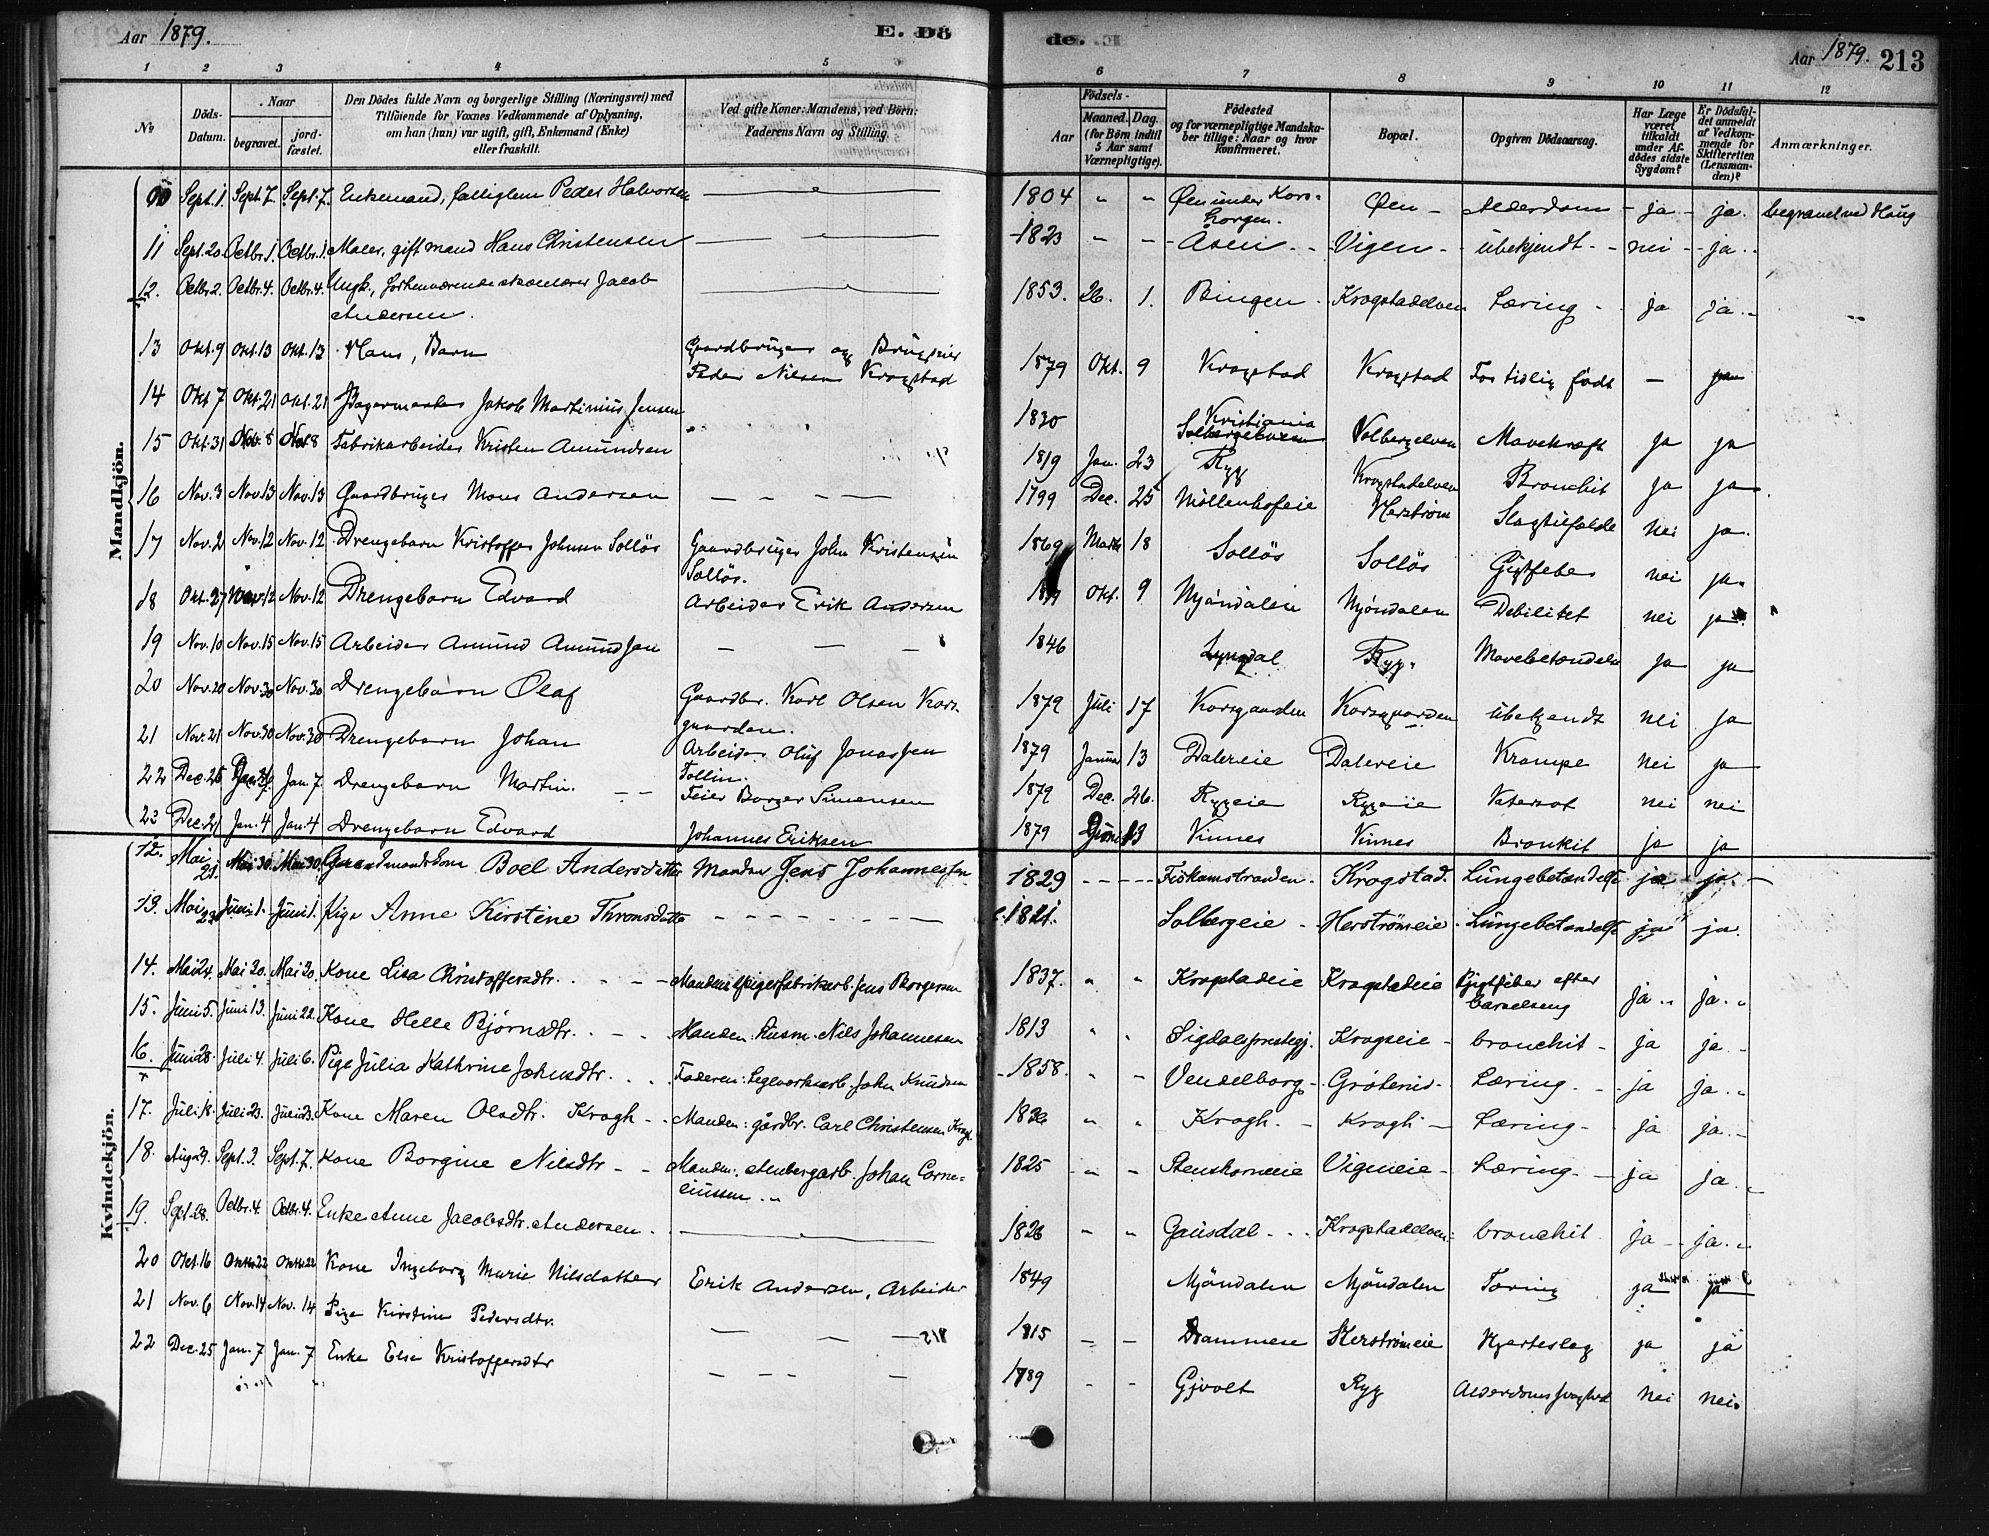 Aar 1879. E. Dö
de. Aar 1879. 213
1 2 3 4 5 6 7 8 9 10 11 12
No
Döds-Datum.
Naar
begravet.
jordfæstet.
Den Dödes fulde Navn og borgerlige Stilling (Næringsvei) med
Tilföiende for Voxnes Vedkommende af Oplysning,
om han (hun) var ugift, gift, Enkemand (Enke)
eller fraskilt.
Ved gifte Koner: Mandens, ved Börn:
Faderens Navn og Stilling.
Födsels-
Aar
Maaned. Dag.
(for Börn indtil
5 Aar samt
Værnepligtige).
Födested
og for værnepligtige Mandska-
ber tillige: Naar og hvor
konfirmeret.
Bopæl.
Opgiven Dödsaarsag.
Har Læge
været
tilkaldt
under Af-
dödes sidste
Sygdom?
Er Dödsfal-
det anmeldt
af Vedkom-
mende for
Skifteretten
(Lensman-
den)?
Anmærkninger.
Mandkjön.
10 Sept. 1. Sept. 7. Sept. 7. Enkemand, fattiglem Peder Halvorsen 1804 " " Øen under Kors-
horgen. Øen - Alderdom - ja - ja. begravet ved Haug
11 Sept. 20. Octbr. 1. Octbr. 1. Maler, gift mand Hans Christensen 1823 - - Aasen - Vigen - ubekjendt - nei - ja.
12. Octbr. 2. Octbr. 4. Octbr. 4. Ungk., forhenværende skolelærer Jacob
Andersen. 1853. 26. 1. Bingen - Krogstadelven Tæring - ja ja.
13 Okt. 9 Okt. 13 Okt. 13 Hans, Barn Gaardbruger og Brugseier
Peder Nilsen Krogstad 1879 Okt. 9 Krogstad Krogstad For tidlig født - ja
14 Okt 7 Okt. 21 Okt. 21 Bagermester Jakob Martinius Jensen 1830 Kristiania
Solbergelven Mavekræft ja ja
15 Okt. 31 Nov. 8 Nov. 8 Fabrikarbeider Kristen Amundsen 1819 Jan. 23 Ryg Krogstadelven Bronchit ja ja
16 Nov. 3 Nov. 13 Nov. 13 Gaardbruger Mons Andersen 1799 Dec. 25 Möllenhofeie Herström Slagtilfælde nei ja.
17 Nov. 2 Nov. 12 Nov. 12 Drengebarn Kristoffer Johnsen Solløs Gaardbruger John Kristensen
Solløs. 1869 Marts 18 Solløs Solløs Gigtfeber nei ja.
18 Okt. 27 Nov. 12 Nov. 12 Drengebarn Edvard Arbeider Erik Andersen 1879 Okt. 9 Mjöndalen Mjöndalen Debilitet nei ja.
19 Nov. 10 Nov. 15 Nov. 15 Arbeider Amund Amundsen 1846 Lyngdal Ryg. Mavebetændelse ja ja
20 Nov. 20 Nov. 30 Nov. 30 Drengebarn Olaf Gaardbr. Karl Olsen Kors-
gaarden. 1879 Juli 17 Korsgaarden Korsgaarden ubekjendt nei ja
21 Nov. 21 Nov. 30 Nov. 30 Drengebarn Johan Arbeider Oluf Jonassen
Tollin. 1879 Januar 13 Dalereie Dalereie Krampe nei ja
22 Dec. 26 Jan. 7 Jan. 7 Drengebarn Martin. Feier Borger Simensen 1879 Dec. 26. Ryggeie Ryggeie nei nei
23 Dec. 21 Jan. 4 Jan. 4 Drengebarn Edvard Johannes Eriksen 1879 Juni 13 Vinnes Vinnes Bronkit ja ja
Kvindekjön.
12. Mai 21. Mai 30. Mai 30. Gaardmandskone Boel Andersdatter Manden Jens Johannessen 1829 - - Fiskumstranden - Krogstad. Lungebetændelse ja - ja -
13. Mai 23. Juni 1. Juni 1. Pige Anne Kirstine Thronsdatter 1821. Solbergeie - Herströmeie - Lungebetændelse ja ja.
14. Mai 24. Mai 20. Mai 20. Kone Lisa Christoffersdtr. Manden Spigerfabrikarb. Jens Borgersen 1837. " " Krogstadeie Krogstadeie Gigtfeber efter
barselseng ja. ja.
15. Juni 5. Juni 13. Juni 22. Kone Helle Bjørnsdtr. Manden: Husm. Nils Johannesen 1813 " " Sigdals prestegj. Krogseie - bronchit - ja ja.
16. Juni 28. Juli 4. Juli 6. Pige Julia Kathrine Johnsdtr. Faderen: Teglverksarb. John Knudsen 1858. " " Vendelborg - Tæring - ja ja.
17. Juli 18. Juli 23. Juli 23. Kone Maren Olsdtr. Krogh Manden: gårdbr. Carl Christensen Krogh 1836 " " Krogh. - Krogh - Tæring - ja ja.
18. Aug. 29. Sept. 3. Sept. 7. Kone Borgine Nilsdtr Manden: Johan Corne-
liussen. 1825 " " Stenskorneeie Vigeneie - Tæring - ja ja.
19. Sept. 28. Octbr. 4. Octbr. 4. Enke Anne Jacobsdtr. Andersen. 1826 " " Gausdal - Krogstadelven bronchit ja - ja.
20 Okt. 16 22 22 Kone Ingeborg Marie Nilsdatter Erik Andersen, Arbeider 1849 Mjöndalen Mjöndalen Tæring ja ja
21 Nov. 6 Nov. 14 Nov. 14 Pige Kirstine Pedersdtr. 1815 - - Drammen Herstrømeie Hjerteslag ja ja
22 Dec. 25 Jan. 7 Jan. 7 Enke Else Kristoffersdtr 1789 - - Gjvolt Ryg Alderdomssvaghed nei nei.